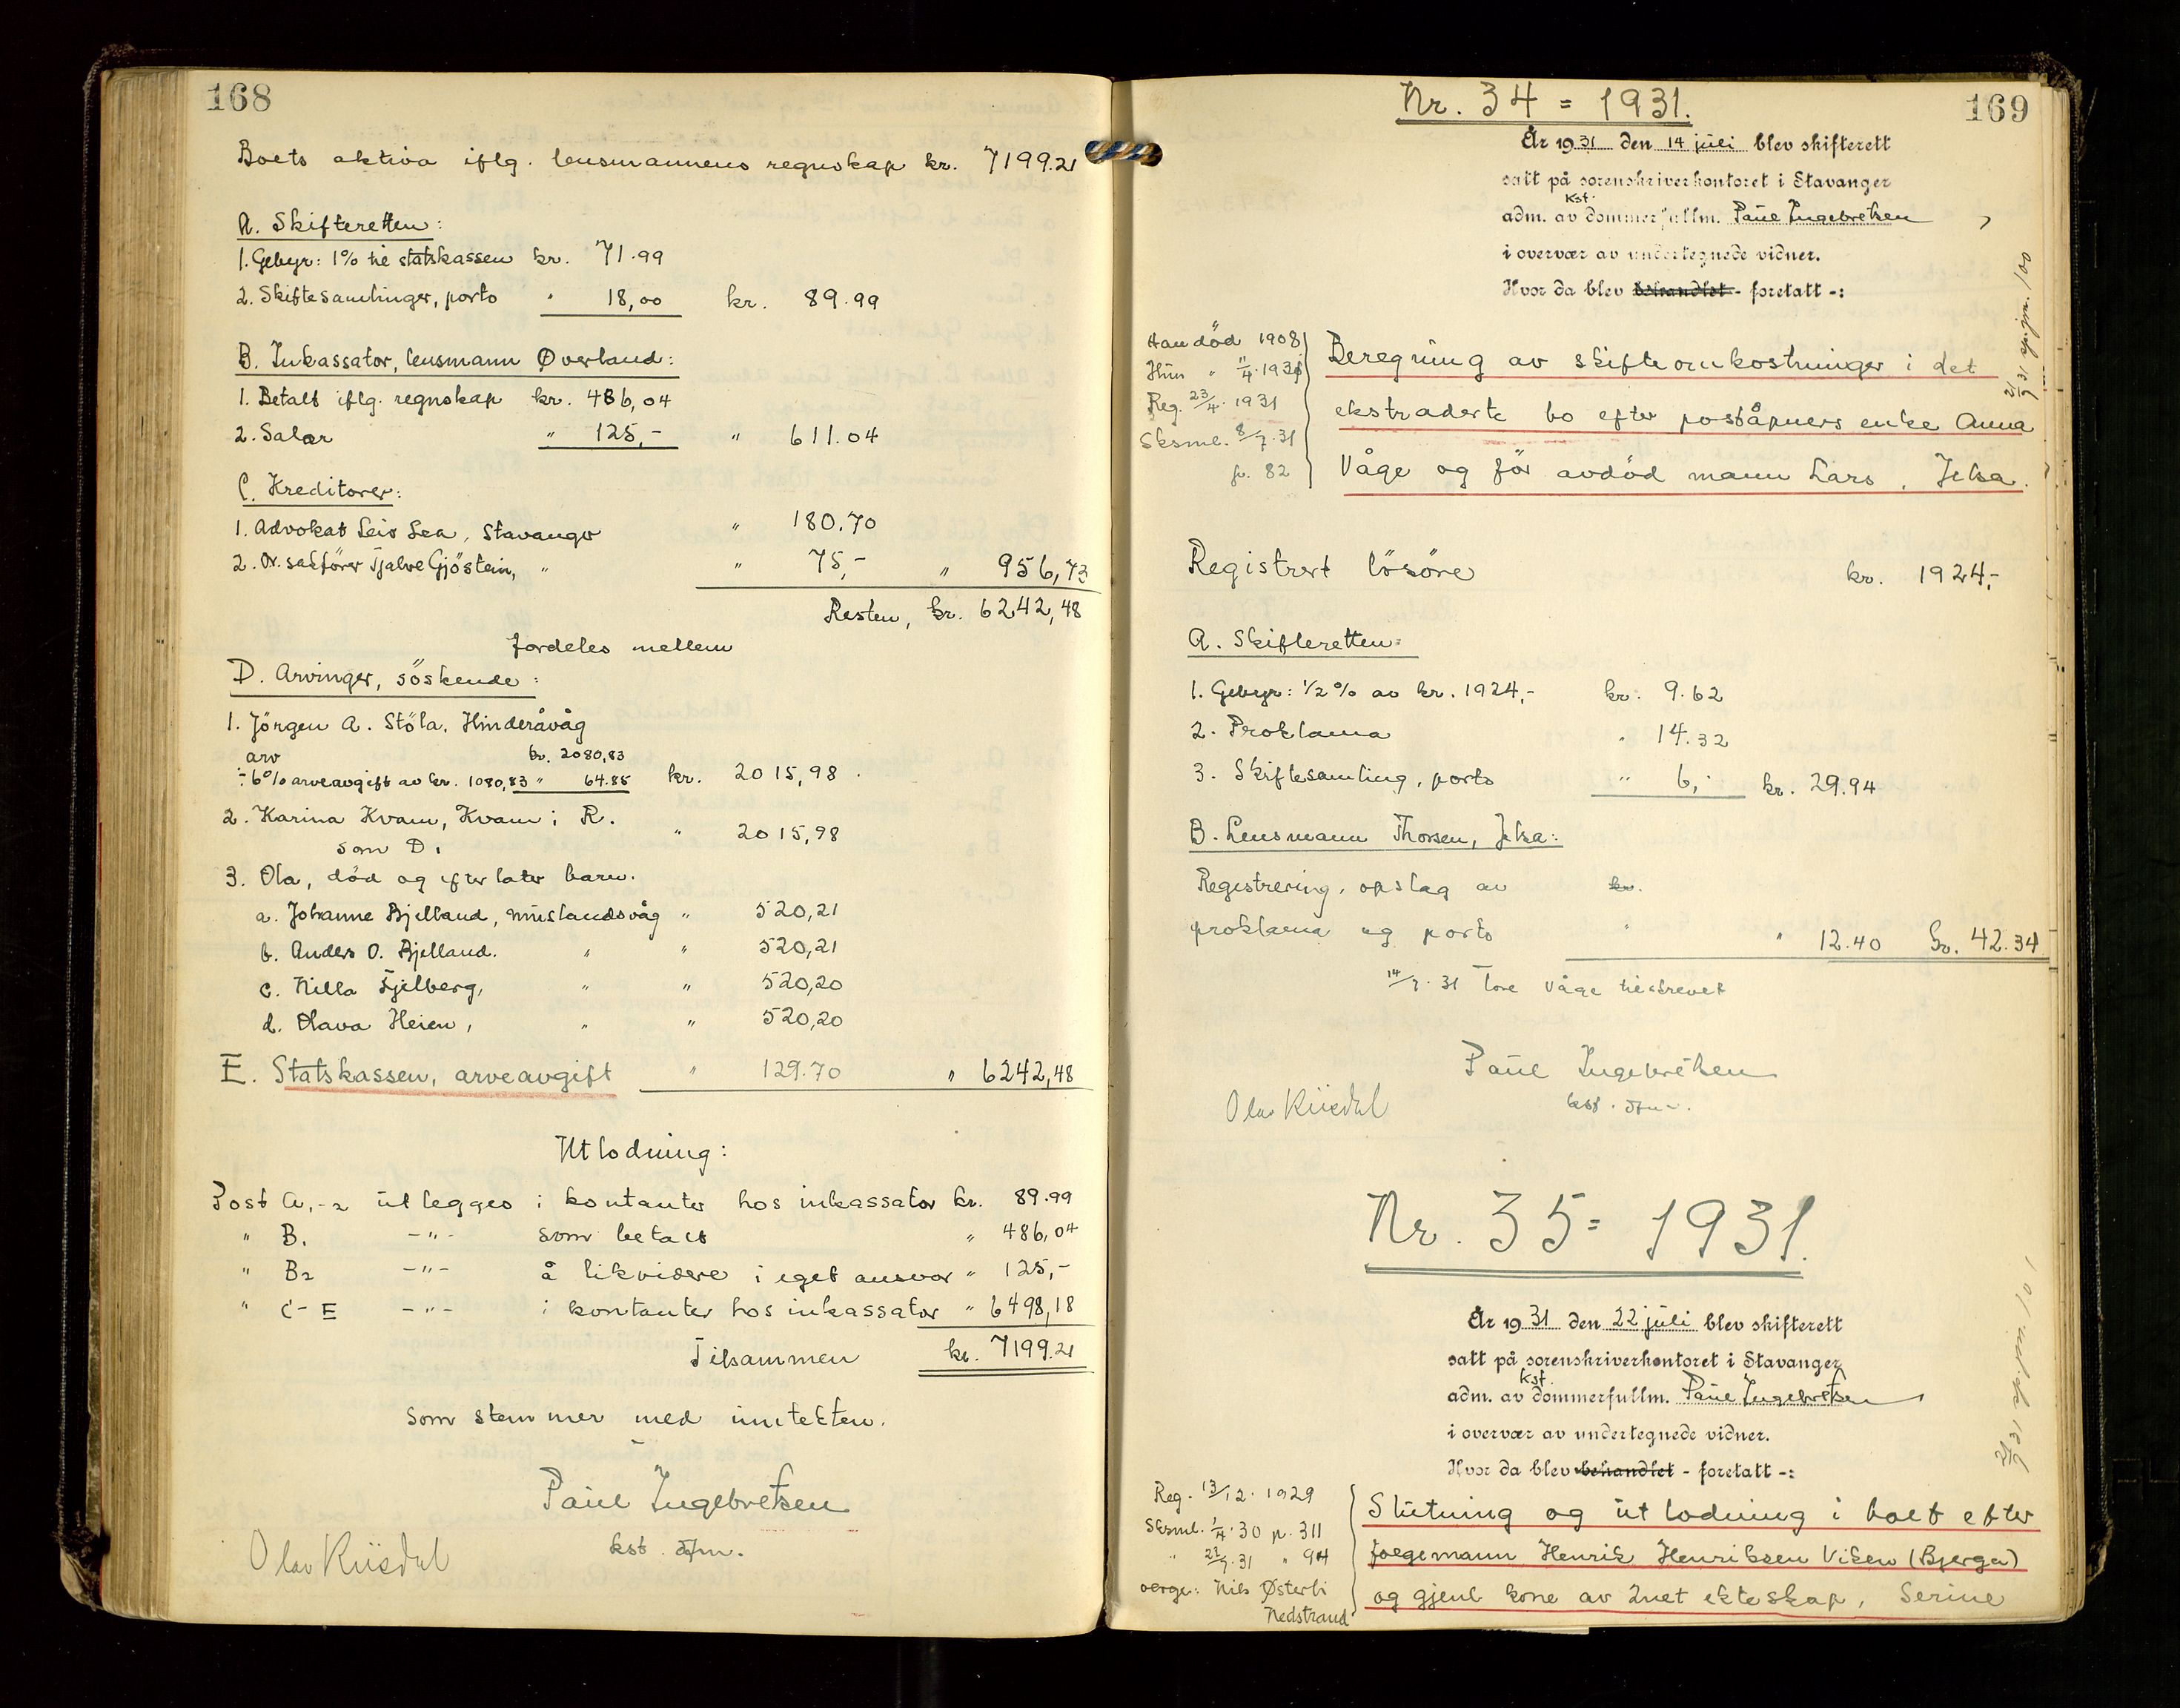 168
Boets aktiva iflg. lensmannens regnskap kr. 7199.21
A. Skifteretten:
1. Gebyr: 1% til statskassen kr. 71.99
2. Skiftesamlinger, porto " 18,00 kr. 89.99
B. Inkassator, lensmann Øverland:
1. Betalt iflg. regnskap kr. 486,04
2. Salær " 125,- " 611.04
C. Kreditorer:
1. Advokat Leiv Lea, Stavanger " 180.70
2. O.r. sakfører Tjalve Gjöstein, " " 75,- " 956,73
Resten, kr. 6242,48
fordeles mellem
D. Arvinger, söskende:
1. Jörgen A. Stöla, Hinderåvåg
arv kr. 2080,83
÷ 6% arveavgift av kr. 1080,83 " 64.85 kr. 2015,98.
2. Karina Kvam, Kvam i R. " 2015,98
som D1
3. Ola, död og efterlater barn.
a. Johanne Bjelland, Mislandsvåg " 520,21
b. Anders O. Bjelland. " " 520,21
c. Nilla Fjelberg, " " 520,20
d. Olava Heien, " " 520,20
E. Statskassen, arveavgift " 129.70 " 6242,48
Utlodning:
Post A1-2 utlegges i kontanter hos inkassator kr. 89.99
" B1 -"- som betalt " 486,04
" B2 -"- å likvidere i eget ansvar " 125,-
" C-E -"- i kontanter hos inkassator " 6498,18
Tilsammen kr. 7199.21
som stemmer med inntekten.
Paul Ingebretsen
kst. dfm.
Olav Riisdal
169
Nr. 34 = 1931.
År 1931 den 14 juli blev skifterett
satt på sorenskriverkontoret i Stavanger
kst.
adm. av dommerfullm. Paul Ingebretsen,
i overvær av undertegnede vidner.
Hvor da blev behandlet - foretatt -:
21/9 31 sp. jnr. 100
Han död 1908
Hun " 11/4. 1931
Reg. 23/4. 1931
Sksml. 8/7. 31
p. 82
Beregning av skifteomkostninger i det
ekstraderte bo efter poståpners enke Anna
Våge og før avdöd mann Lars, Jelsa.
Registrert lösöre kr. 1924,-
A. Skifteretten:
1. Gebyr: 1/2% av kr. 1924,- kr. 9.62
2. Proklama " 14.32
3. Skiftesamling, porto " 6,- kr. 29.94
B. Lensmann Thorsen, Jelsa:
Registrering, opslag av kr.
proklama og porto " " 12.40 kr. 42.34
14/7. 31 Tore Våge tilskrevet
Paul Ingebretsen
kst. dfm.
Olav Riisdal
Nr. 35 = 1931.
År 1931 den 22 juli blev skifterett
satt på sorenskriverkontoret i Stavanger
kst.
adm. av dommerfullm. Paul Ingebretsen,
i overvær av undertegnede vidner.
Hvor da blev behandlet - foretatt -:
21/9 31 sp. jnr. 101
Reg. 13/12. 1929
Sksml. 1/4. 30 p. 311
" 22/7. 31 " 94
verge: Nils Østerbi
Nedstrand
Slutning og utlodning i boet efter
foegemann Henrik Henriksen Viken (Bjerga)
og gjenl. kone av 2net ekteskap, Serine